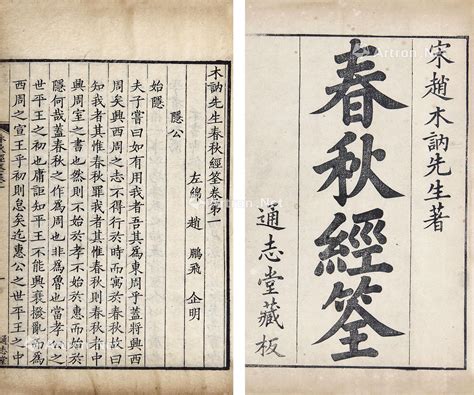 宋趙木訥先生著
春秋經筌
通志堂藏板
木訥先生春秋經筌卷第一
左緜趙鵬飛企明
隱公
始隱
夫子嘗曰如有用我者吾其爲東周乎蓋將興西
周矣興西周之志不得行於時而寓於春秋故曰
知我者其惟春秋罪我者其惟春秋則春秋者中
興周室之書也然則不始於孝不始於惠而始於
隱何哉蓋春秋之作爲周也非爲魯也當孝公之
世平王之初也庸詎知平王不能興衰撥亂而爲
西周之宣王乎初則怠矣迄惠公之世平王之中
通志堂
Artron.Net
Artron.Net